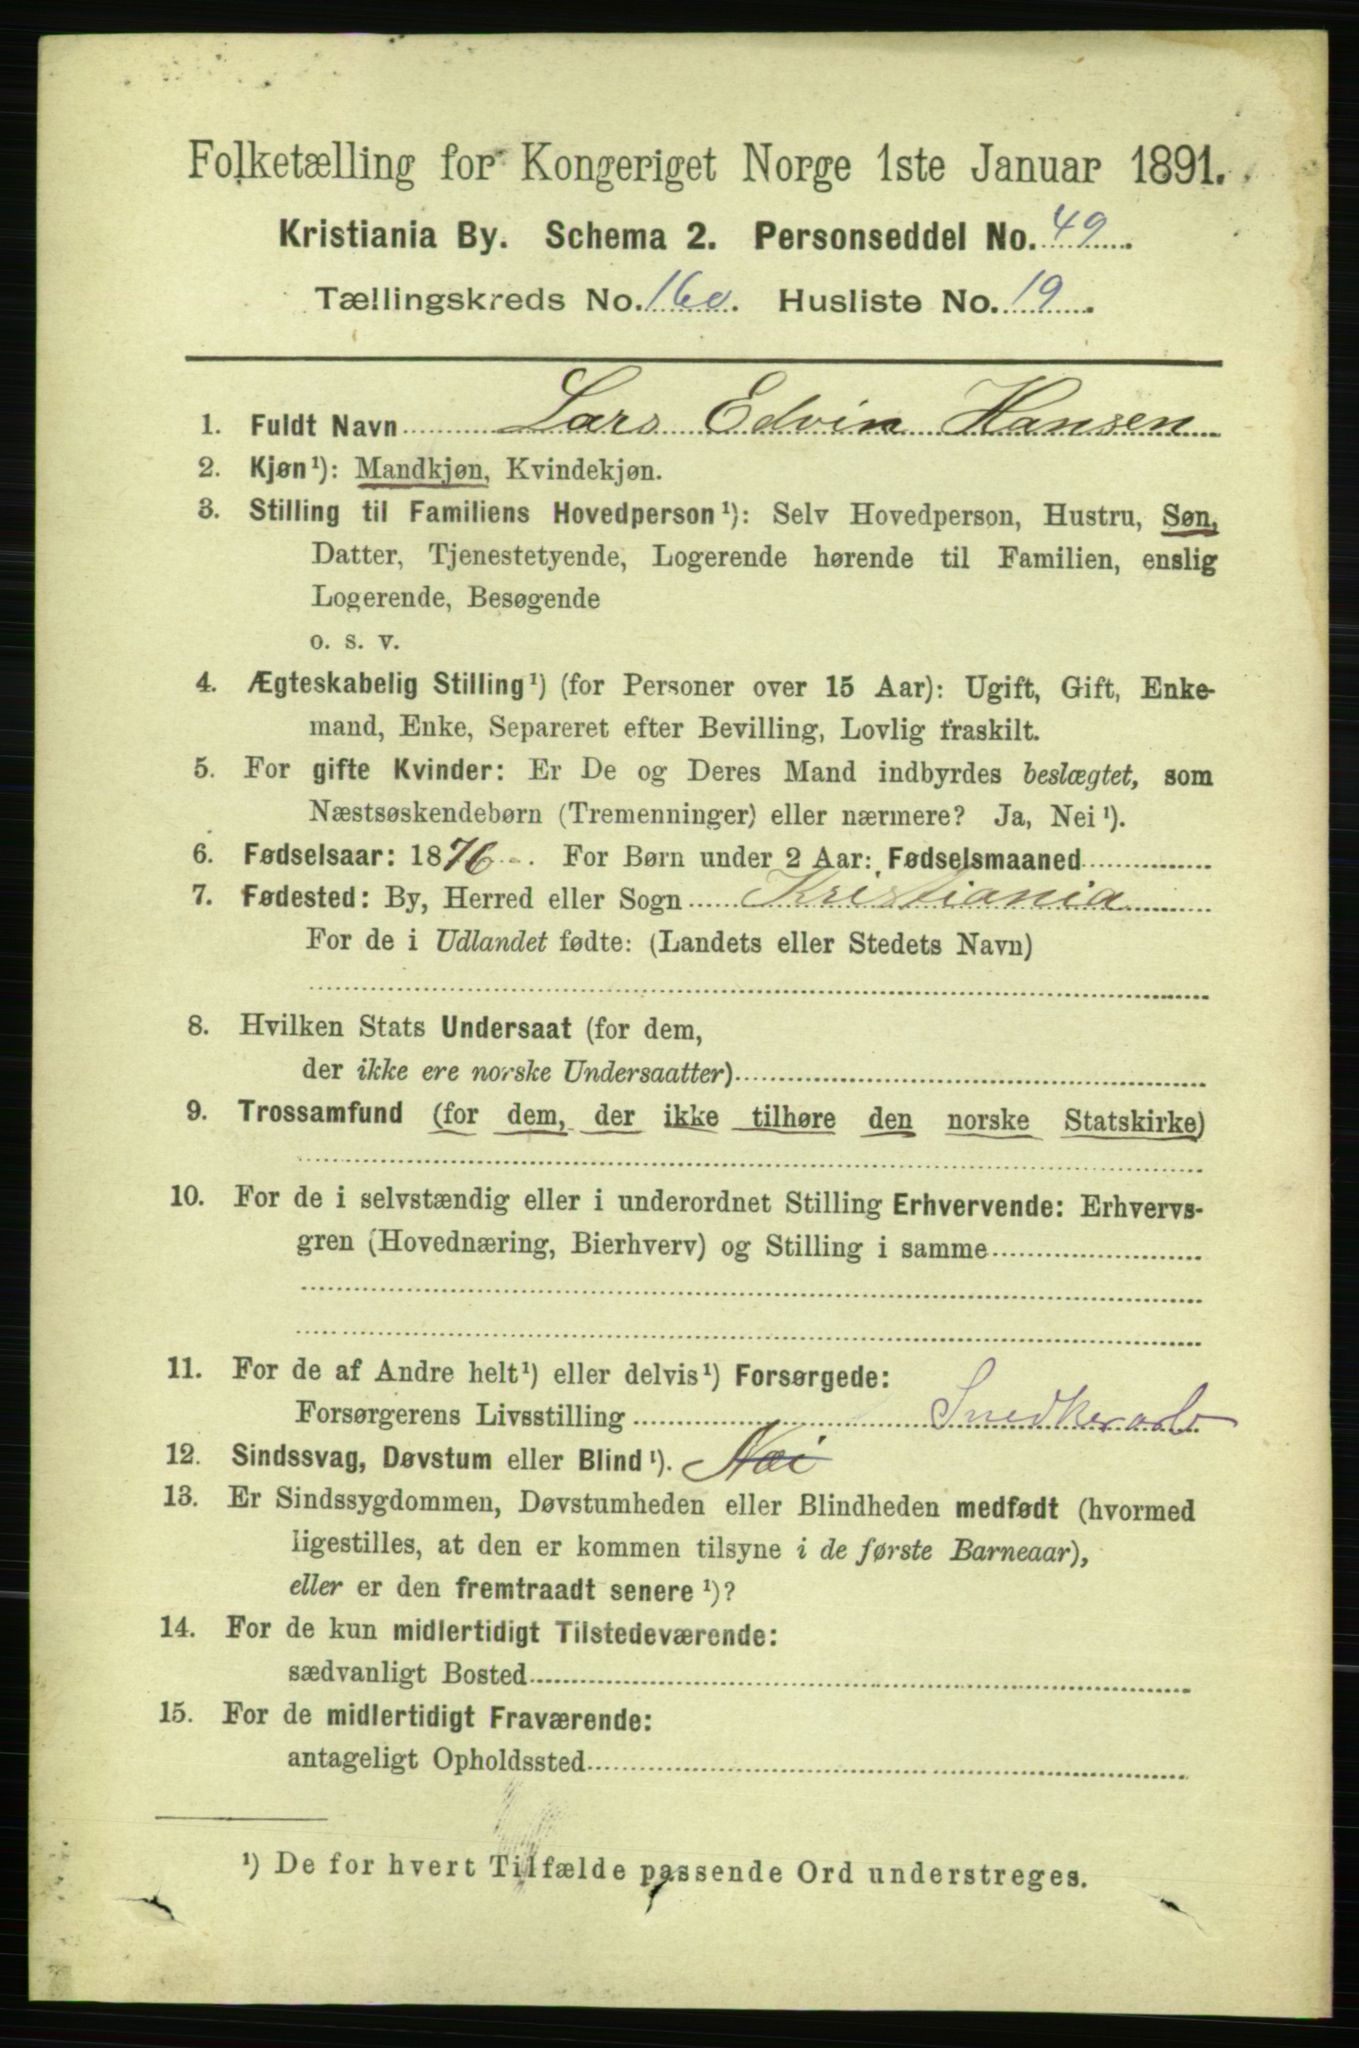 Folketælling for Kongeriget Norge 1ste Januar 1891.
Kristiania By. Schema 2. Personseddel No. 49.
Tællingskreds No. 160. Husliste No. 19.
1. Fuldt Navn Lars Edvin Hansen
2. Kjøn¹): Mandkjøn, Kvindekjøn.
3. Stilling til Familiens Hovedperson¹): Selv Hovedperson, Hustru, Søn,
Datter, Tjenestetyende, Logerende hørende til Familien, enslig
Logerende, Besøgende
o. s. v.
4. Ægteskabelig Stilling¹) (for Personer over 15 Aar): Ugift, Gift, Enke-
mand, Enke, Separeret efter Bevilling, Lovlig fraskilt.
5. For gifte Kvinder: Er De og Deres Mand indbyrdes beslægtet, som
Næstsøskendebørn (Tremenninger) eller nærmere? Ja, Nei¹).
6. Fødselsaar: 1876. For Børn under 2 Aar: Fødselsmaaned
7. Fødested: By, Herred eller Sogn Kristiania
For de i Udlandet fødte: (Landets eller Stedets Navn)
8. Hvilken Stats Undersaat (for dem,
der ikke ere norske Undersaatter)
9. Trossamfund (for dem, der ikke tilhøre den norske Statskirke)
10. For de i selvstændig eller i underordnet Stilling Erhvervende: Erhvervs-
gren (Hovednæring, Bierhverv) og Stilling i samme
11. For de af Andre helt¹) eller delvis¹) Forsørgede:
Forsørgerens Livsstilling Snedkerarb
12. Sindssvag, Døvstum eller Blind¹). Nei
13. Er Sindssygdommen, Døvstumheden eller Blindheden medfødt (hvormed
ligestilles, at den er kommen tilsyne i de første Barneaar),
eller er den fremtraadt senere¹)?
14. For de kun midlertidigt Tilstedeværende:
sædvanligt Bosted
15. For de midlertidigt Fraværende:
antageligt Opholdssted
¹) De for hvert Tilfælde passende Ord understreges.